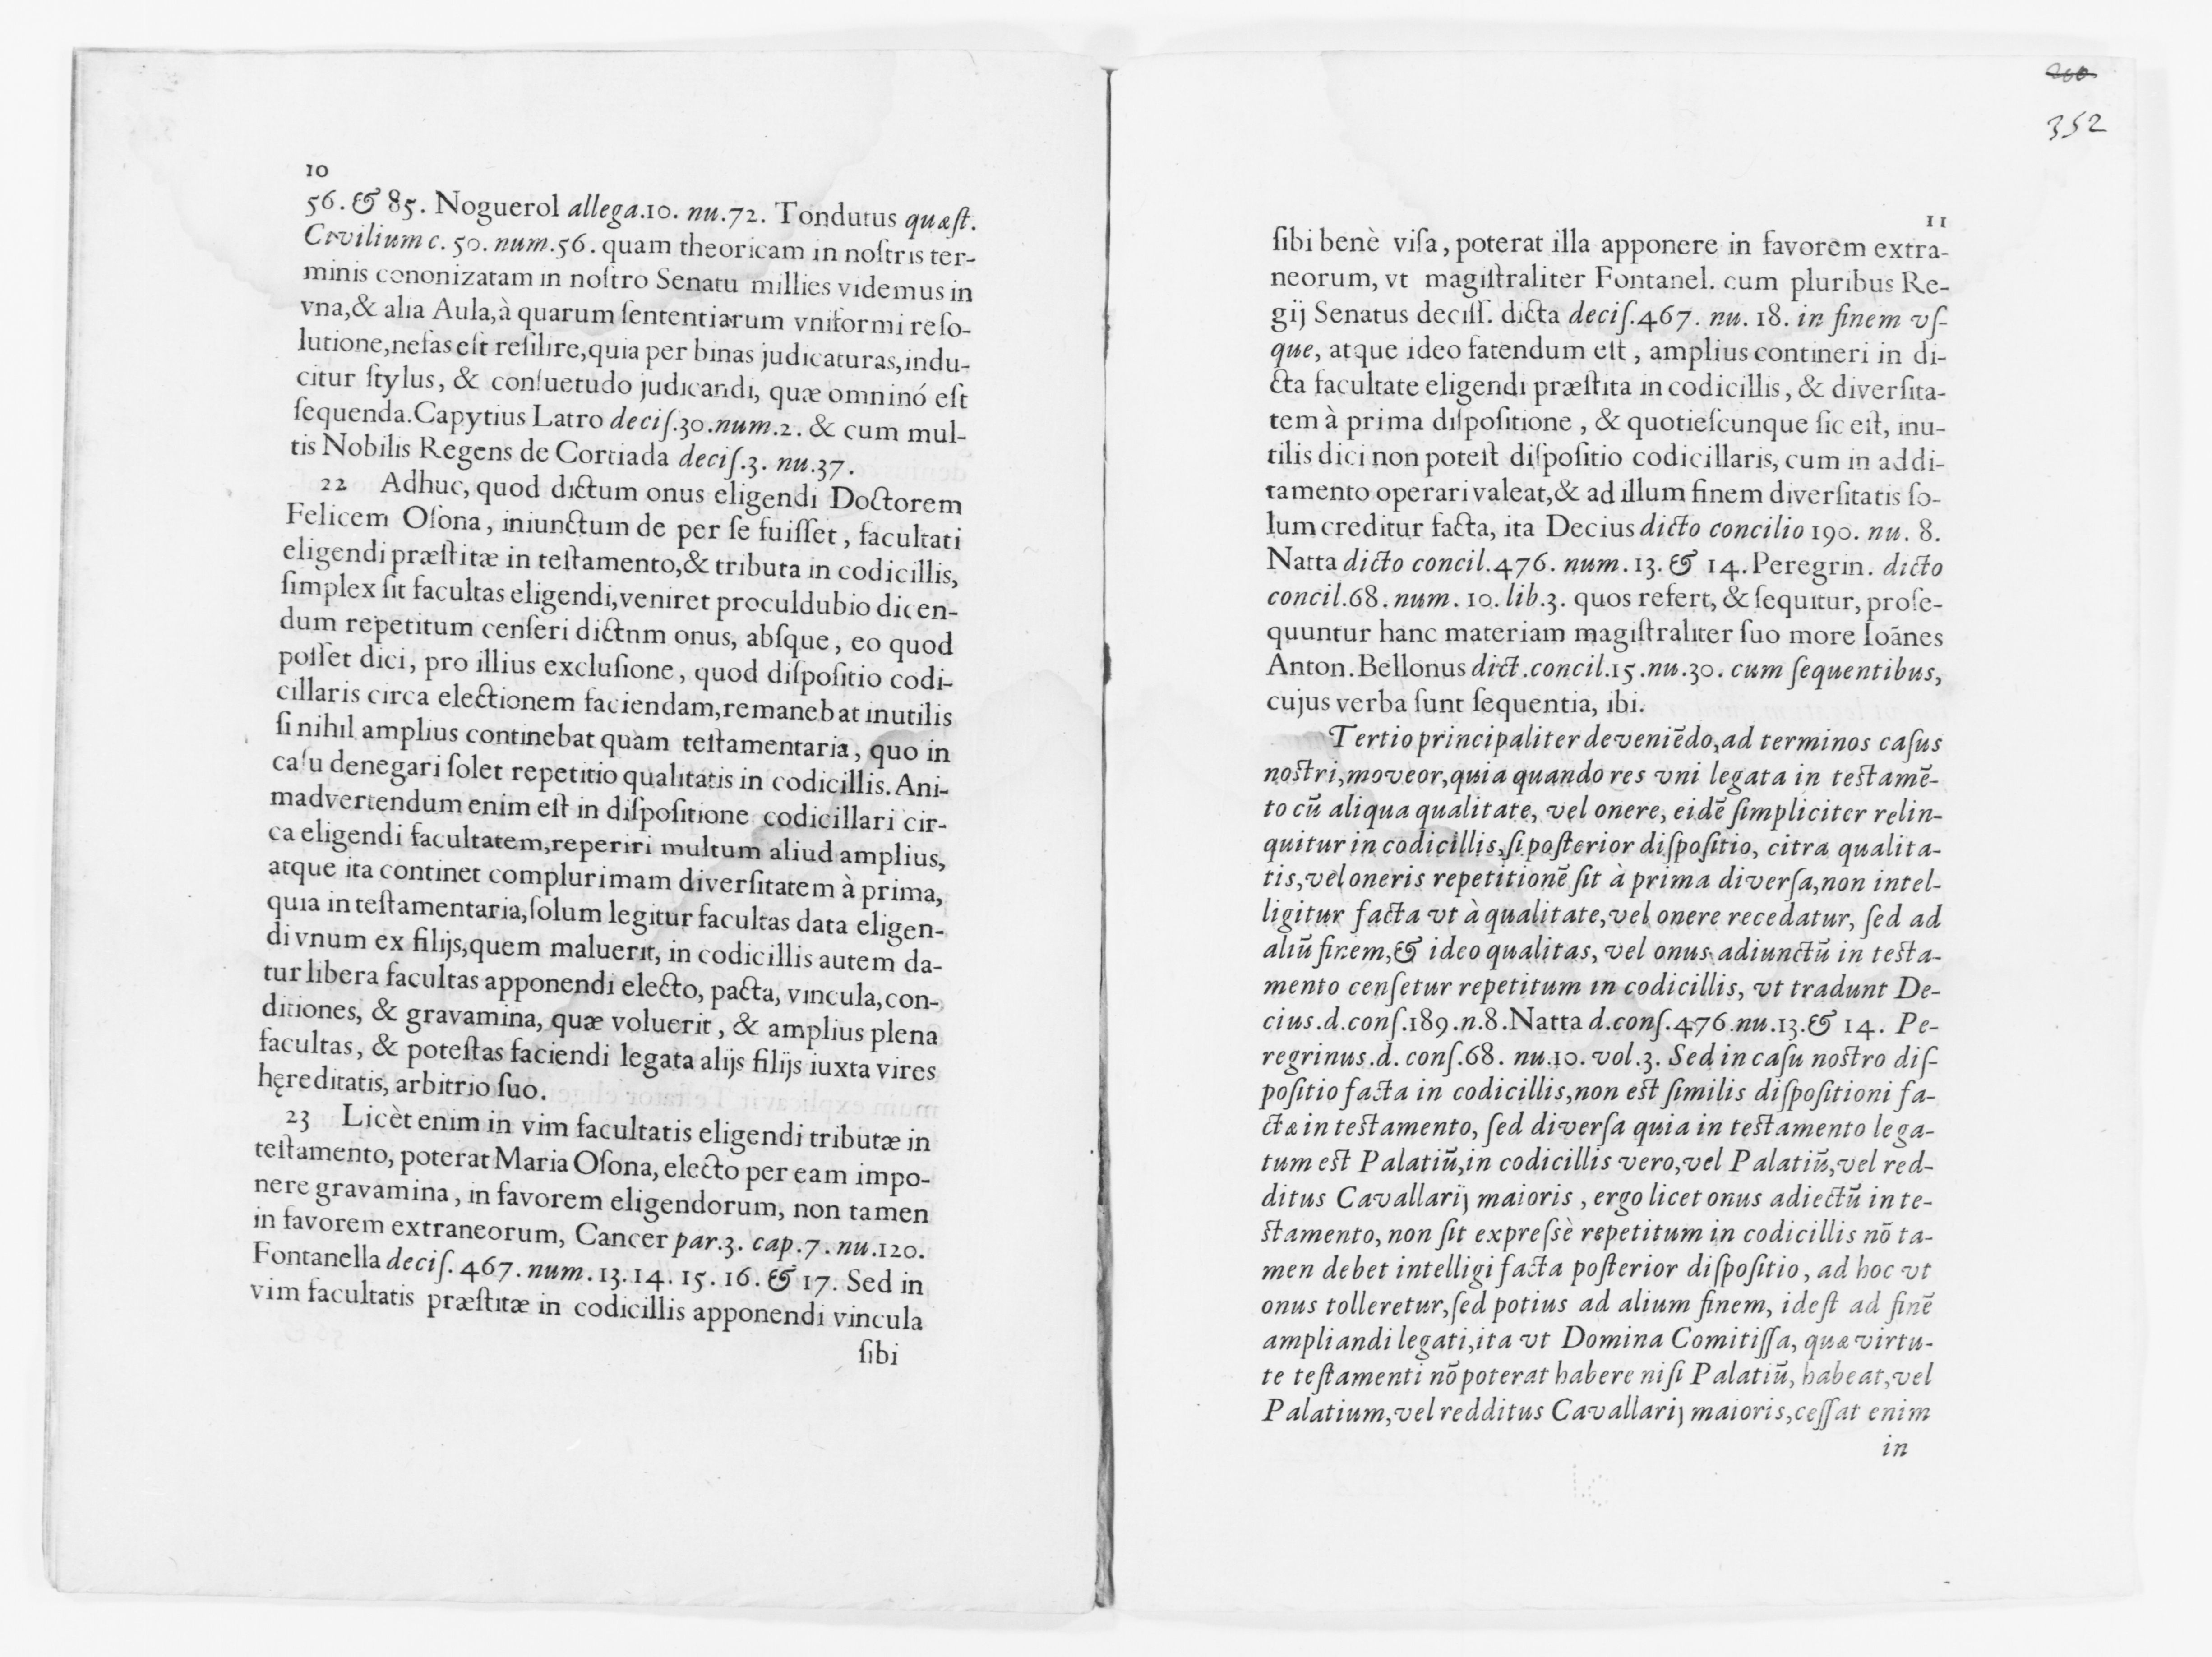 10
56. & 85. Noguerol allega.10. nu.72. Tondutus quæſt.
Civilium c. 50. num.56. quam theoricam in noſtris ter-
minis cononizatam in noſtro Senatu millies videmus in
vna,& alia Aula,à quarum ſententiarum vniformi reſo-
lutione,nefas eſt reſilire,quia per binas judicaturas,indu-
citur ſtylus, & conſuetudo judicandi, quæ omninó eſt
ſequenda.Capytius Latro deciſ.30.num.2. & cum mul-
tis Nobilis Regens de Cortiada deciſ.3. nu.37.
22 Adhuc, quod dictum onus eligendi Doctorem
Felicem Oſona, iniunctum de per ſe fuiſſet, facultati
eligendi præſtitæ in teſtamento,& tributa in codicillis,
ſimplex ſit facultas eligendi,veniret proculdubio dicen-
dum repetitum cenſeri dictnm onus, abſque, eo quod
poſſet dici, pro illius excluſione, quod diſpoſitio codi-
cillaris circa electionem faciendam,remanebat inutilis
ſi nihil amplius continebat quàm teſtamentaria, quo in
caſu denegari ſolet repetitio qualitatis in codicillis. Ani-
madvertendum enim eſt in diſpoſitione codicillari cir-
ca eligendi facultatem,reperiri multum aliud amplius,
atque ita continet complurimam diverſitatem à prima,
quia in teſtamentaria,ſolum legitur facultas data eligen-
di vnum ex filijs,quem maluerit, in codicillis autem da-
tur libera facultas apponendi electo, pacta, vincula,con-
ditiones, & gravamina, quæ voluerit, & amplius plena
facultas, & poteſtas faciendi legata alijs filijs iuxta vires
hęreditatis, arbitrio ſuo.
23 Licèt enim in vim facultatis eligendi tributæ in
teſtamento, poterat Maria Oſona, electo per eam impo-
nere gravamina, in favorem eligendorum, non tamen
in favorem extraneorum, Cancer par.3. cap.7. nu.120.
Fontanella deciſ. 467. num. 13. 14. 15. 16. & 17. Sed in
vim facultatis præſtitæ in codicillis apponendi vincula
ſibi
352
11
ſibi benè viſa, poterat illa apponere in favorem extra-
neorum, vt magiſtraliter Fontanel. cum pluribus Re-
gij Senatus deciſſ. dicta deciſ.467. nu. 18. in finem vſ-
que, atque ideo fatendum eſt, amplius contineri in di-
cta facultate eligendi præſtita in codicillis, & diverſita-
tem à prima diſpoſitione, & quotieſcunque ſic eſt, inu-
tilis dici non poteſt diſpoſitio codicillaris, cum in addi-
tamento operari valeat,& ad illum finem diverſitatis ſo-
lum creditur facta, ita Decius dicto concilio 190. nu. 8.
Natta dicto concil.476. num. 13. & 14. Peregrin. dicto
concil.68. num. 10. lib.3. quos refert, & ſequitur, proſe-
quuntur hanc materiam magiſtraliter ſuo more Ioānes
Anton. Bellonus dict.concil.15.nu.30. cum ſequentibus,
cujus verba ſunt ſequentia, ibi.
Tertio principaliter deveniēdo,ad terminos caſus
noſtri,moveor,quia quando res vni legata in teſtamē-
to cū aliqua qualitate, vel onere, eidē ſimpliciter relin-
quitur in codicillis,ſi poſterior diſpoſitio, citra qualita-
tis,vel oneris repetitionē ſit à prima diverſa,non intel-
ligitur facta vt à qualitate,vel onere recedatur, ſed ad
aliū finem,& ideo qualitas, vel onus adiunctū in teſta-
mento cenſetur repetitum in codicillis, vt tradunt De-
cius.d.conſ.189.n.8.Natta d.conſ.476.nu.13.& 14. Pe-
regrinus.d. conſ.68. nu.10. vol.3. Sed in caſu noſtro diſ-
poſitio facta in codicillis,non eſt ſimilis diſpoſitioni fa-
ctæ in teſtamento, ſed diverſa quia in teſtamento lega-
tum eſt Palatiū,in codicillis vero,vel Palatiū,vel red-
ditus Cavallarij maioris, ergo licet onus adiectū in te-
ſtamento, non ſit expreſsè repetitum in codicillis nō ta-
men debet intelligi facta poſterior diſpoſitio, ad hoc vt
onus tolleretur,ſed potius ad alium finem, ideſt ad finē
ampliandi legati,ita vt Domina Comitiſſa, quæ virtu-
te teſtamenti nō poterat habere niſi Palatiū, habeat,vel
Palatium,vel redditus Cavallarij maioris,ceſſat enim
in